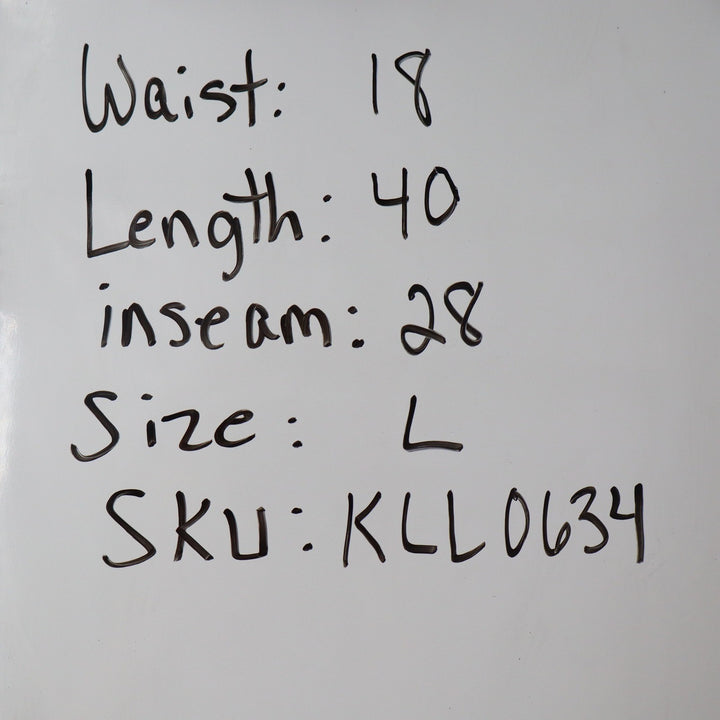 Waist: 18
Length: 40
inseam: 28
Size: L
SKU: KLL0634